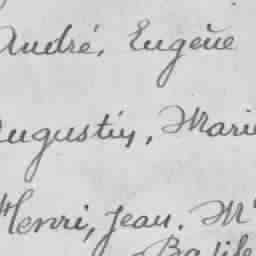 André, Eugène
Augustin, Marie
Henri, Jean. M
Basile